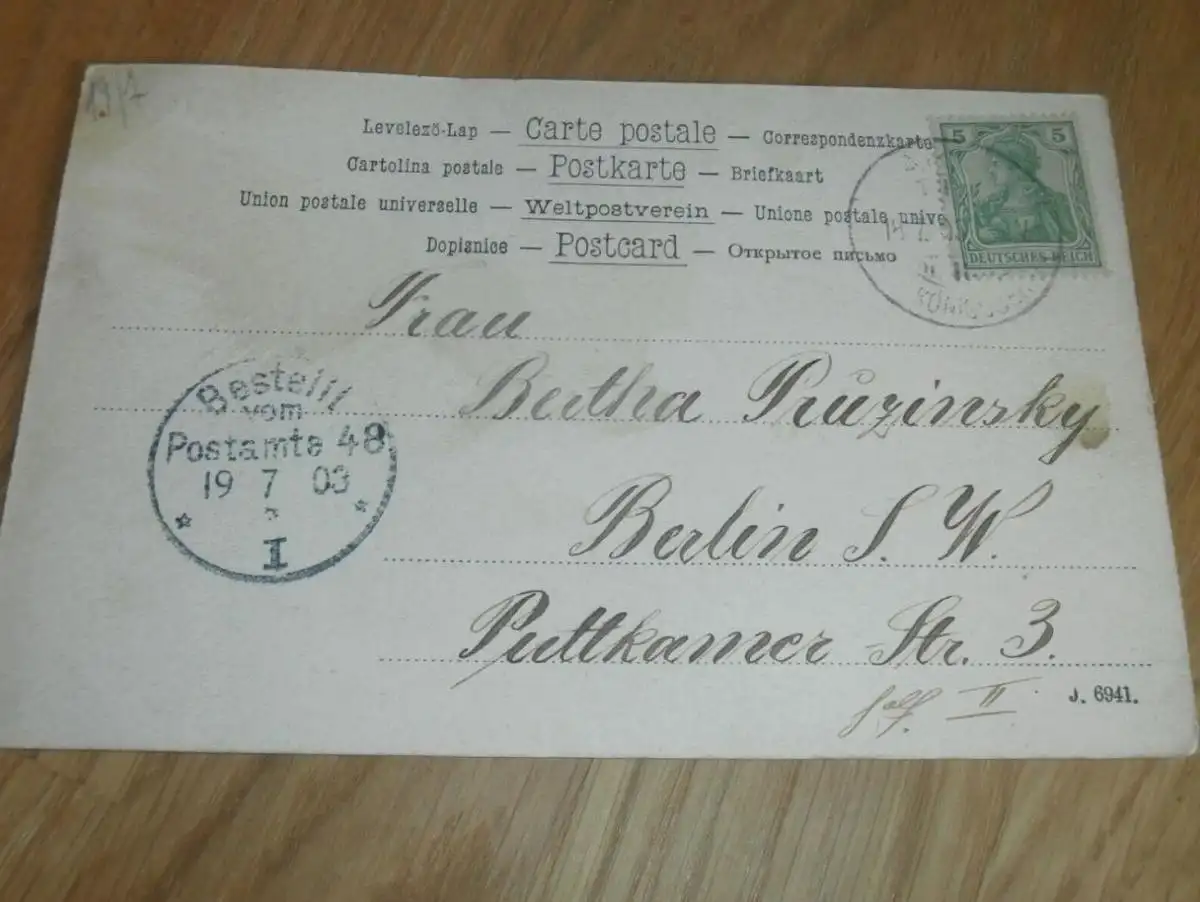 19/7
Levelező-Lap — Carte postale — Correspondenzkarte
Cartolina postale — Postkarte — Briefkaart
Union postale universelle — Weltpostverein — Unione postale unive
Dopisnice — Postcard — Открытое письмо
5 5
DEUTSCHES REICH
Frau
Bertha Pruzinsky
Berlin S. W.
Puttkamer Str. 3.
II
J. 6941.
Bestellt
vom
Postamte 48
19 7 03
I